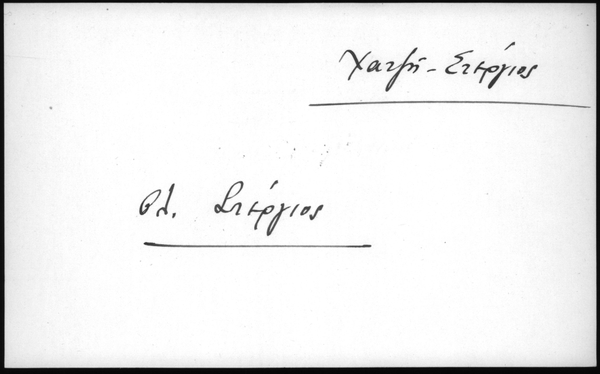 Χατζή-Στέργιος
βλ. Στέργιος